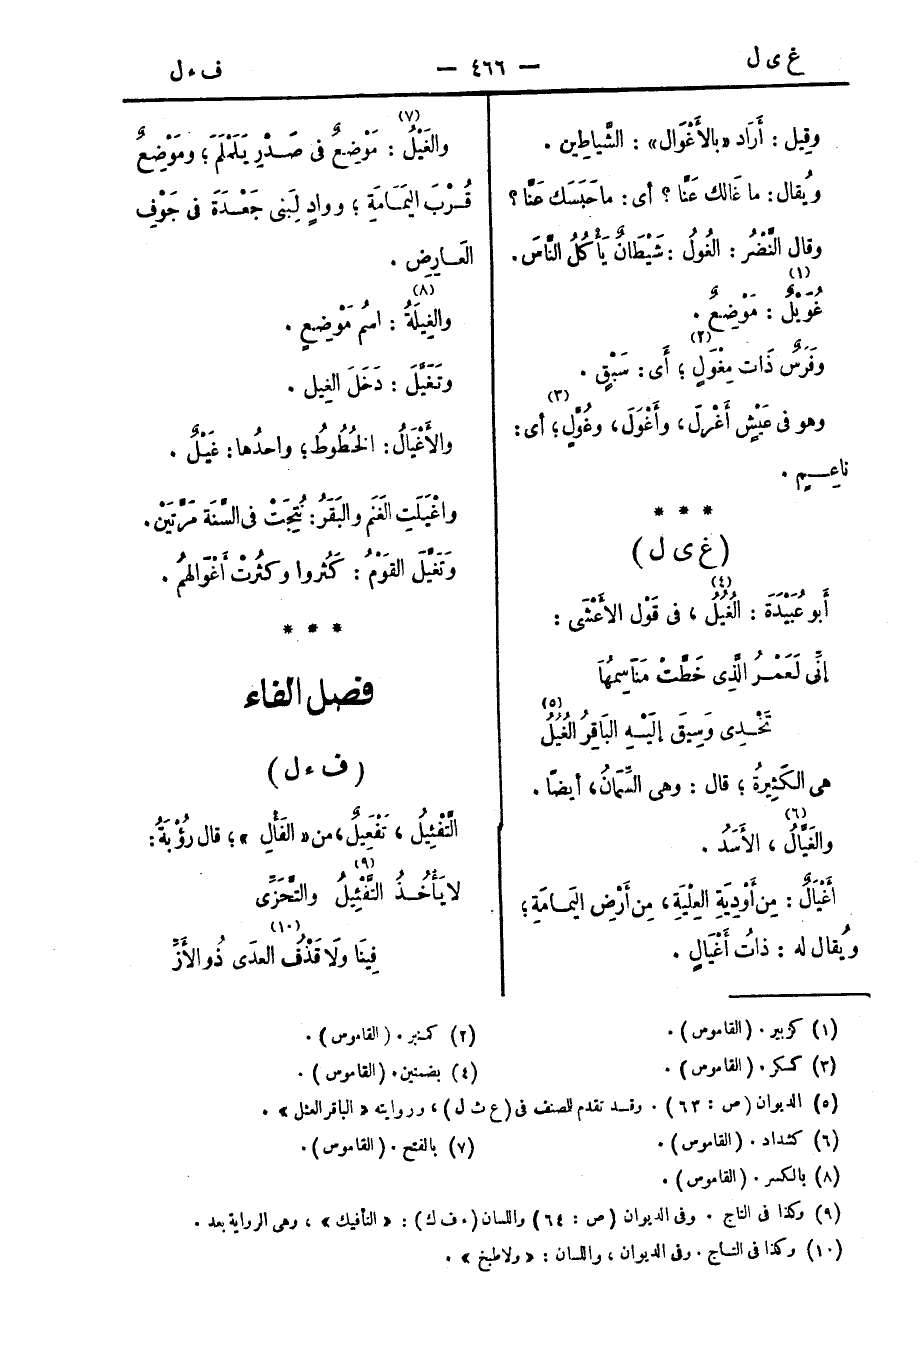 غ ى ل
— ٤٦٦ —
ف ء ل
وقِيل : أَرَاد «بالأَغْوَال» : الشَّياطِين .
ويُقال : ما غَالك عَنَّا ؟ أى : ماحَبَسَك عَنَّا ؟
وقال النَّضْرُ : الغُولُ : شَيْطَانٌ يَأْكُلُ النَّاسَ .
(١)
غُوَيْلٌ : مَوْضِعٌ .
(٢)
وفَرَسٌ ذَات مِغْوَلٍ ؛ أَى : سَبْقٍ .
(٣)
وهو فى عَيْشٍ أَغْرلَ ، وأَغْوَلَ ، وغُوَّلٍ ؛ أى :
ناعِـمٍ .
* * *
( غ ى ل )
(٤)
أبو عُبَيْدَة : الغُيُلُ ، فى قَوْل الأَعْشَى :
إنِّى لَعَمْـرُ الَّذِى خَطَّتْ مَنَاسِمُهَا
(٥)
تَخْـدِى وَسِيقَ إلَيْـهِ البَاقِرُ الغُيُلُ
هى الكَثِيرةُ ؛ قال : وهى السِّمَانُ ، أيضًا .
(٦)
والغَيَّالُ ، الأَسَدُ .
أَغْيَالٌ : مِن أَوْدِيَةِ العِلْيَة ، مِن أَرْضِ اليَمَـامَةِ ؛
ويُقال له : ذاتُ أَغْيَالٍ .
(٧)
والغَيْلُ : مَوْضِعٌ فى صَـدْرِ يَـلَمْلَمَ ؛ ومَوْضِعٌ
قُـرْبَ اليَمَـامَةِ ؛ ووادٍ لِبَنِى جَعْـدَةَ فى جَوْفِ
العَـارِضِ .
(٨)
والغِيلَةُ : اسمُ مَوْضِعٍ .
وتَغَيَّلَ : دَخَلَ الغِيل .
والأَغْيَالُ : الخُطُوطُ ؛ واحدُها : غَيْلٌ .
واغْيَلَتِ الغَنَم والبَقَرُ : نُتِجَتْ فى السَّنَة مَرَّتَيْن .
وتَغَيَّلَ القَوْمُ : كَثُروا وكثُرتْ أَغْوَالهُم .
* * *
فصل الفاء
( ف ء ل )
التَّفْئِيلُ ، تَفْعِيلٌ ، من « الفَأْلِ » ؛ قال رُؤْبَةُ :
(٩)
لا يَأْخُـذُ التَّفْئِيلُ والتَّحَزِّى
(١٠)
فِينَا ولَا قَذْفُ العدَى ذُو الأَزِّ
(١) كزبير . (القاموس) .
(٢) كمنبر . (القاموس) .
(٣) كسكر . (القاموس) .
(٤) بضمتين . (القاموس) .
(٥) الديوان (ص : ٦٣) . وقـد تقدم للصنف فى (ع ث ل) ، وروايته « الباقر العثل » .
(٦) كشداد . (القاموس) .
(٧) بالفتح . (القاموس) .
(٨) بالكسر . (القاموس) .
(٩) وكذا فى التاج . وفى الديوان (ص : ٦٤) واللسان (ء ف ك) : « التأفيك » ، وهى الرواية بعد .
(١٠) وكذا فى التـاج . وفى الديوان ، واللسان : « ولا طيخ » .